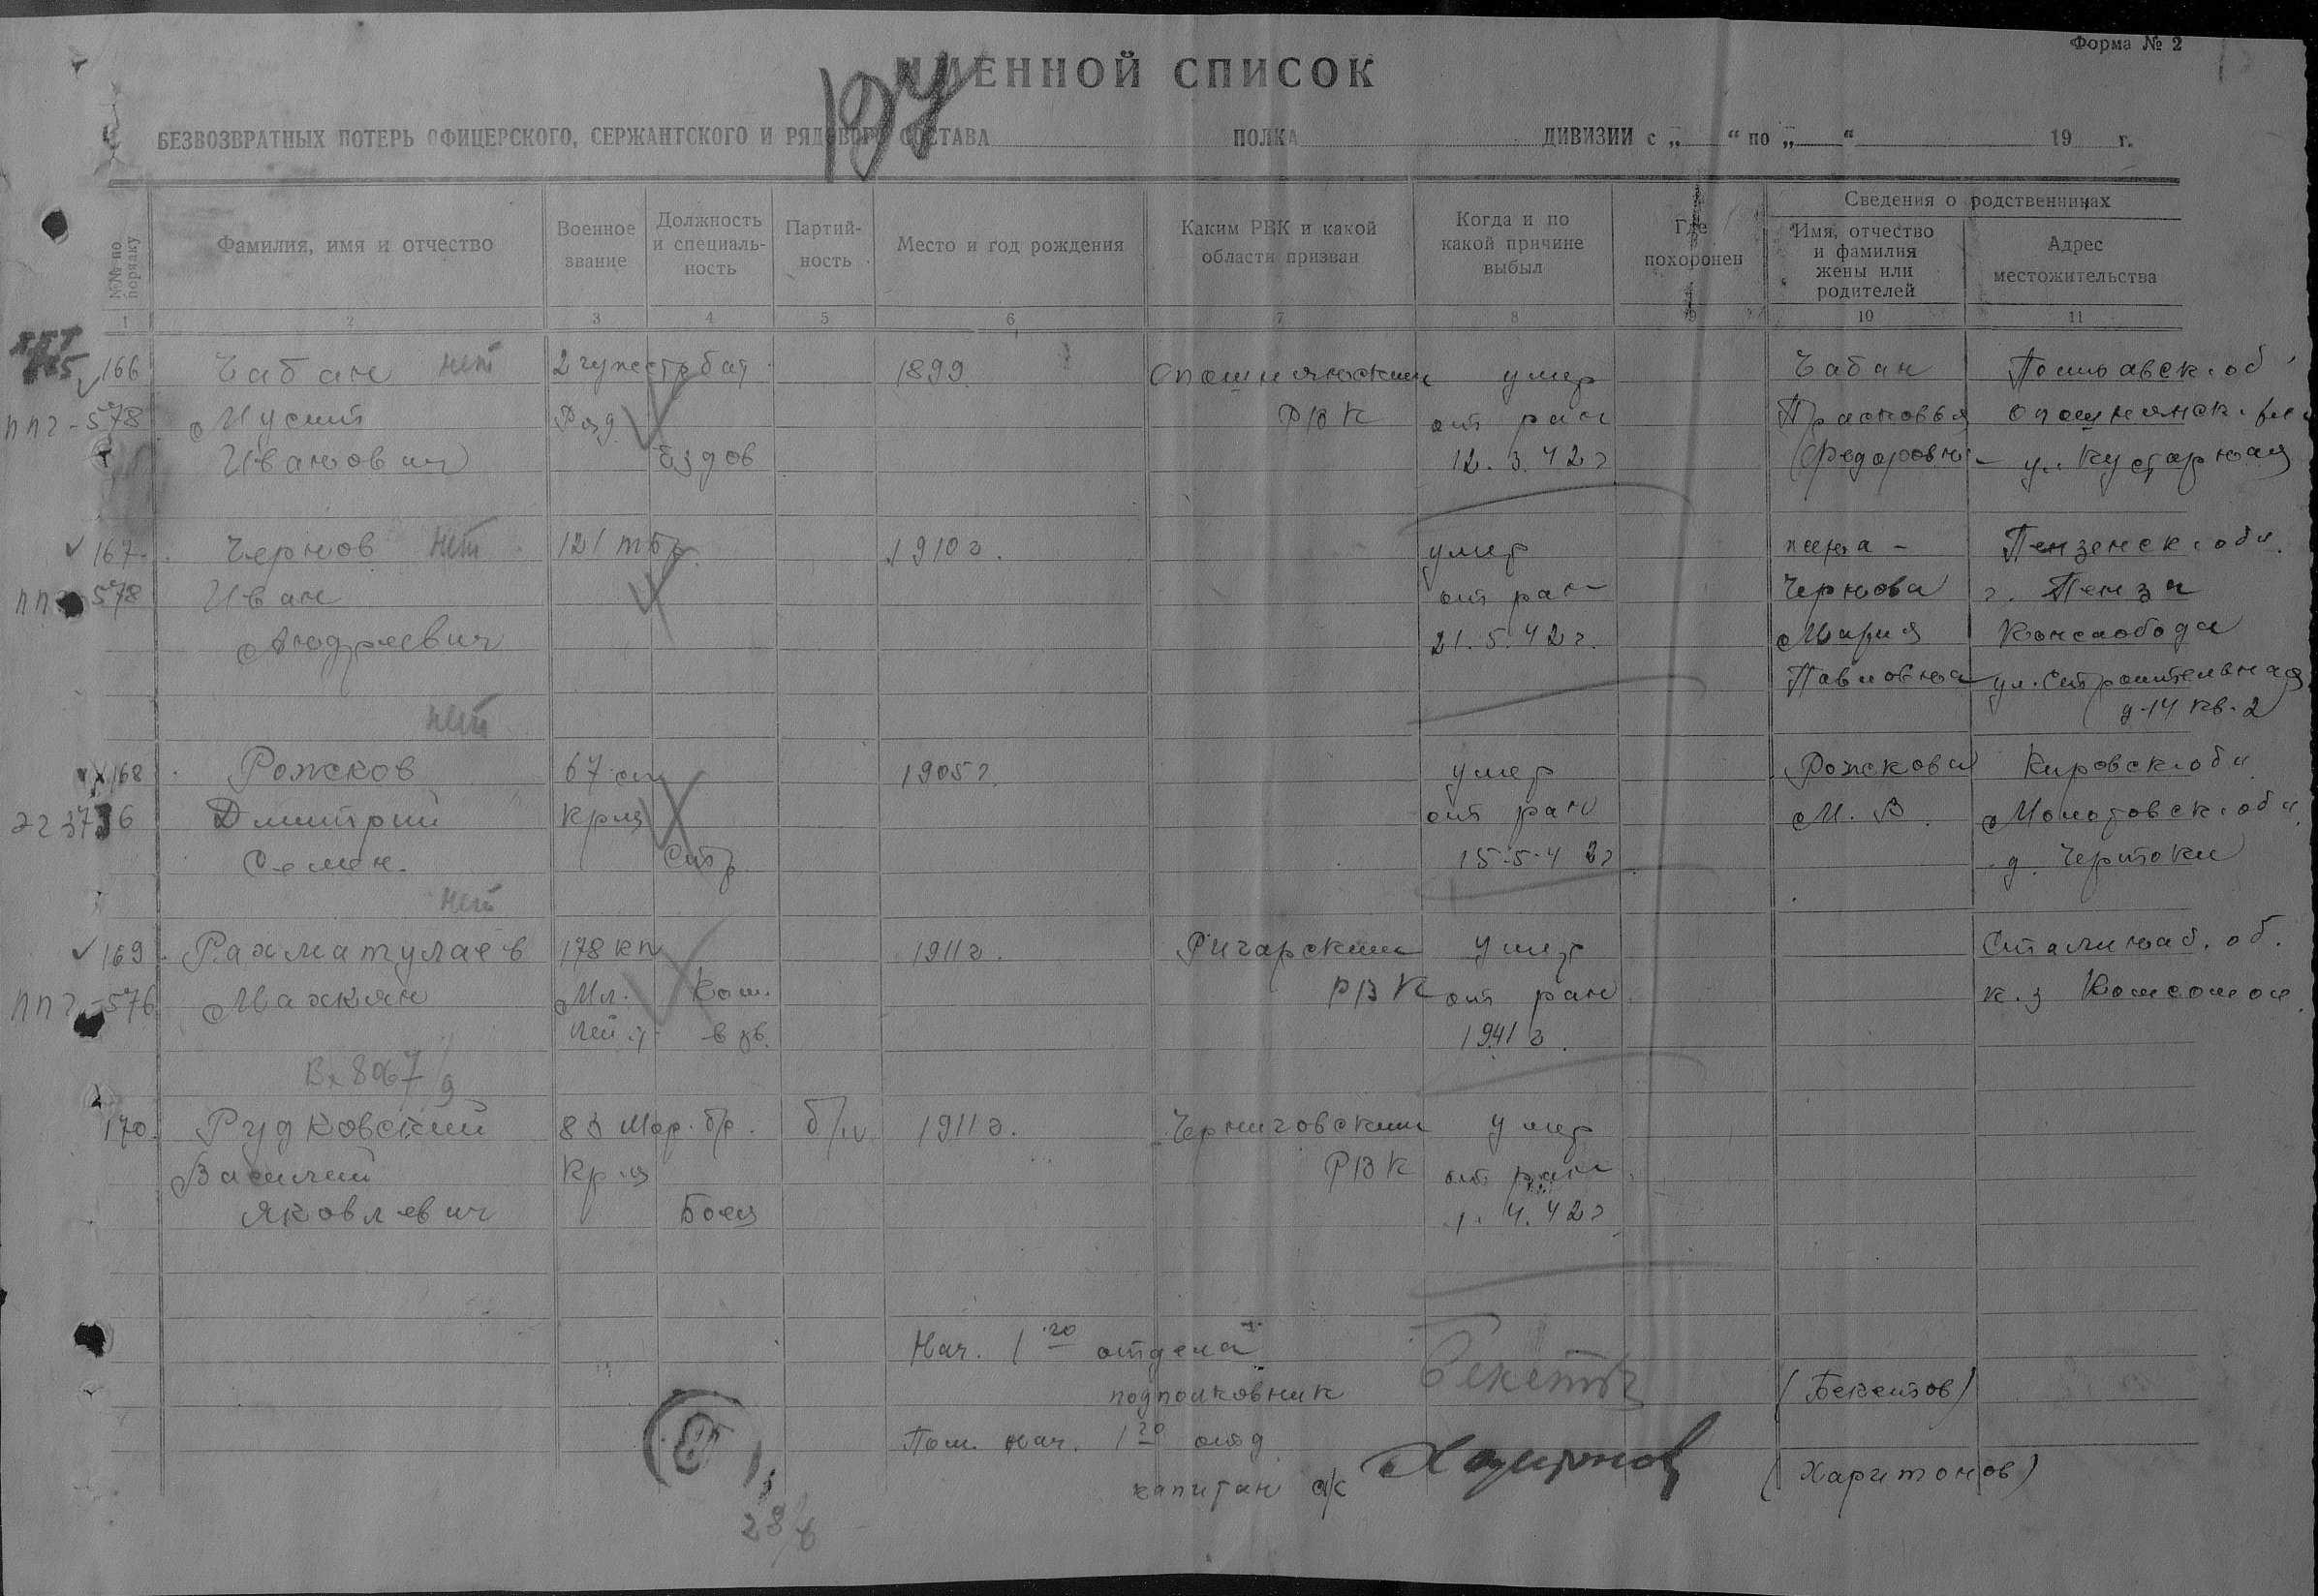 Форма № 2
ИМЕННОЙ СПИСОК
БЕЗВОЗВРАТНЫХ ПОТЕРЬ ОФИЦЕРСКОГО, СЕРЖАНТСКОГО И РЯДОВОГО СОСТАВА ПОЛКА ДИВИЗИИ с „ “ по „ “ 19 г.
№№ по порядку
Фамилия, имя и отчество
Военное звание
Должность и специальность
Партийность
Место и год рождения
Каким РВК и какой области призван
Когда и по какой причине выбыл
Где похоронен
Сведения о родственниках
Имя, отчество и фамилия жены или родителей
Адрес местожительства
1 2 3 4 5 6 7 8 9 10 11
166 Чабан нет 1899 умер Чабан
ппг-578 РВК от ран Прасковья
Иванович Ездов 12.3.42г Федоровна ул. Кустарная
167. Чернов нет 121 тбр. 1910г. умер жена - Пензенск. обл.
578 Иван от ран Чернова г. Пенза
Андреевич 21.5.42г. Мария
Павловна ул. Строительная
д-14 кв-2
нет
168 Рожков 67 1905г. умер Рожкова Кировск. обл
Дмитрий кр-ц от ран М. В. Молотовск. обл.
Семен. Стр. 15-5-42г д.
нет
169 Рахматулаев 178 кп 1911г. умер Сталинаб. об.
ппг-576 Мл. Ком. РВК от ран к.з Комсомол
взв. 1941г.
Вх 8067
170. Рудковский 83 Мор. бр. б/п 1911г. Черниговским умер
Василий кр-ц РВК от ран
Яковлевич Боец 1. 4. 42г
Нач. 1го отдела
подполковник (Бекетов)
Пом. нач. 1го отд
капитан а/с Харитонов (Харитонов)